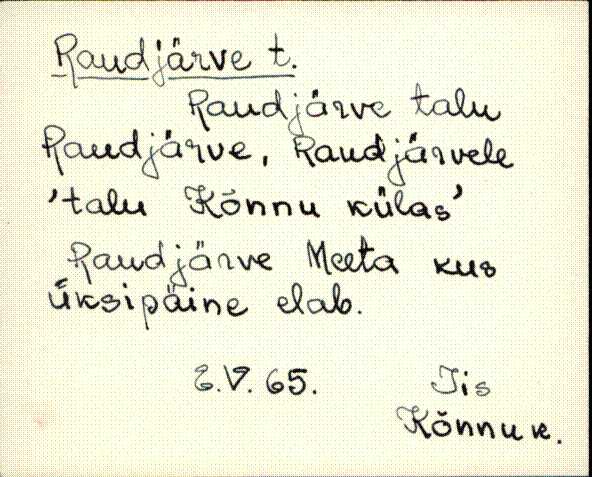 Raudjärve t.
Raudjärve talu
Raudjärve, Raudjärvele
'talu Kõnnu külas'
Raudjärve Meeta kus
üksipäine elab.
E.V. 65. Iis
Kõnnu k.